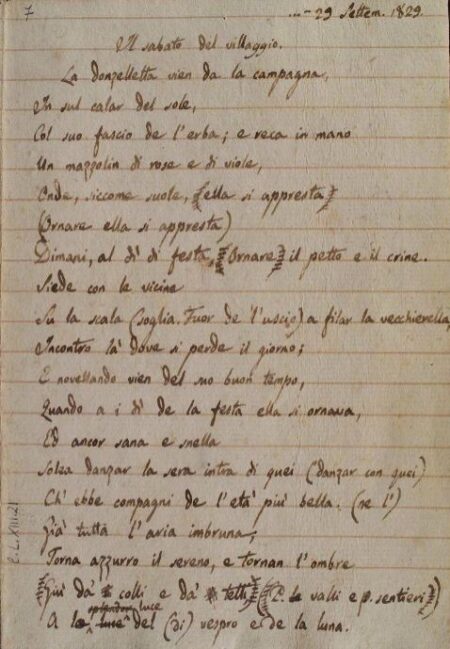 7
... – 29 Settem. 1829.
Il sabato del villaggio.
La donzelletta vien da la campagna,
In sul calar del sole,
Col suo fascio de l'erba; e reca in mano
Un mazzolin di rose e di viole,
Onde, siccome suole, (ella si appresta)
(Ornare ella si appresta)
Dimani, al dì di festa, (Ornare) il petto e il crine.
Siede con le vicine
Su la scala (soglia. Fuor de l'uscio) a filar la vecchierella,
Incontro là dove si perde il giorno;
E novellando vien del suo buon tempo,
Quando a i dì de la festa ella si ornava,
Ed ancor sana e snella
Solea danzar la sera intra di quei (danzar con quei)
Ch'ebbe compagni de l'età più bella. (ne l')
Già tutta l'aria imbruna;
Torna azzurro il sereno, e tornan l'ombre
(Giù dà colli e dà tetti) (P. le valli e p. sentieri)
splendor luce
A la luce del (di) vespro e de la luna.
C.L.XIII.21